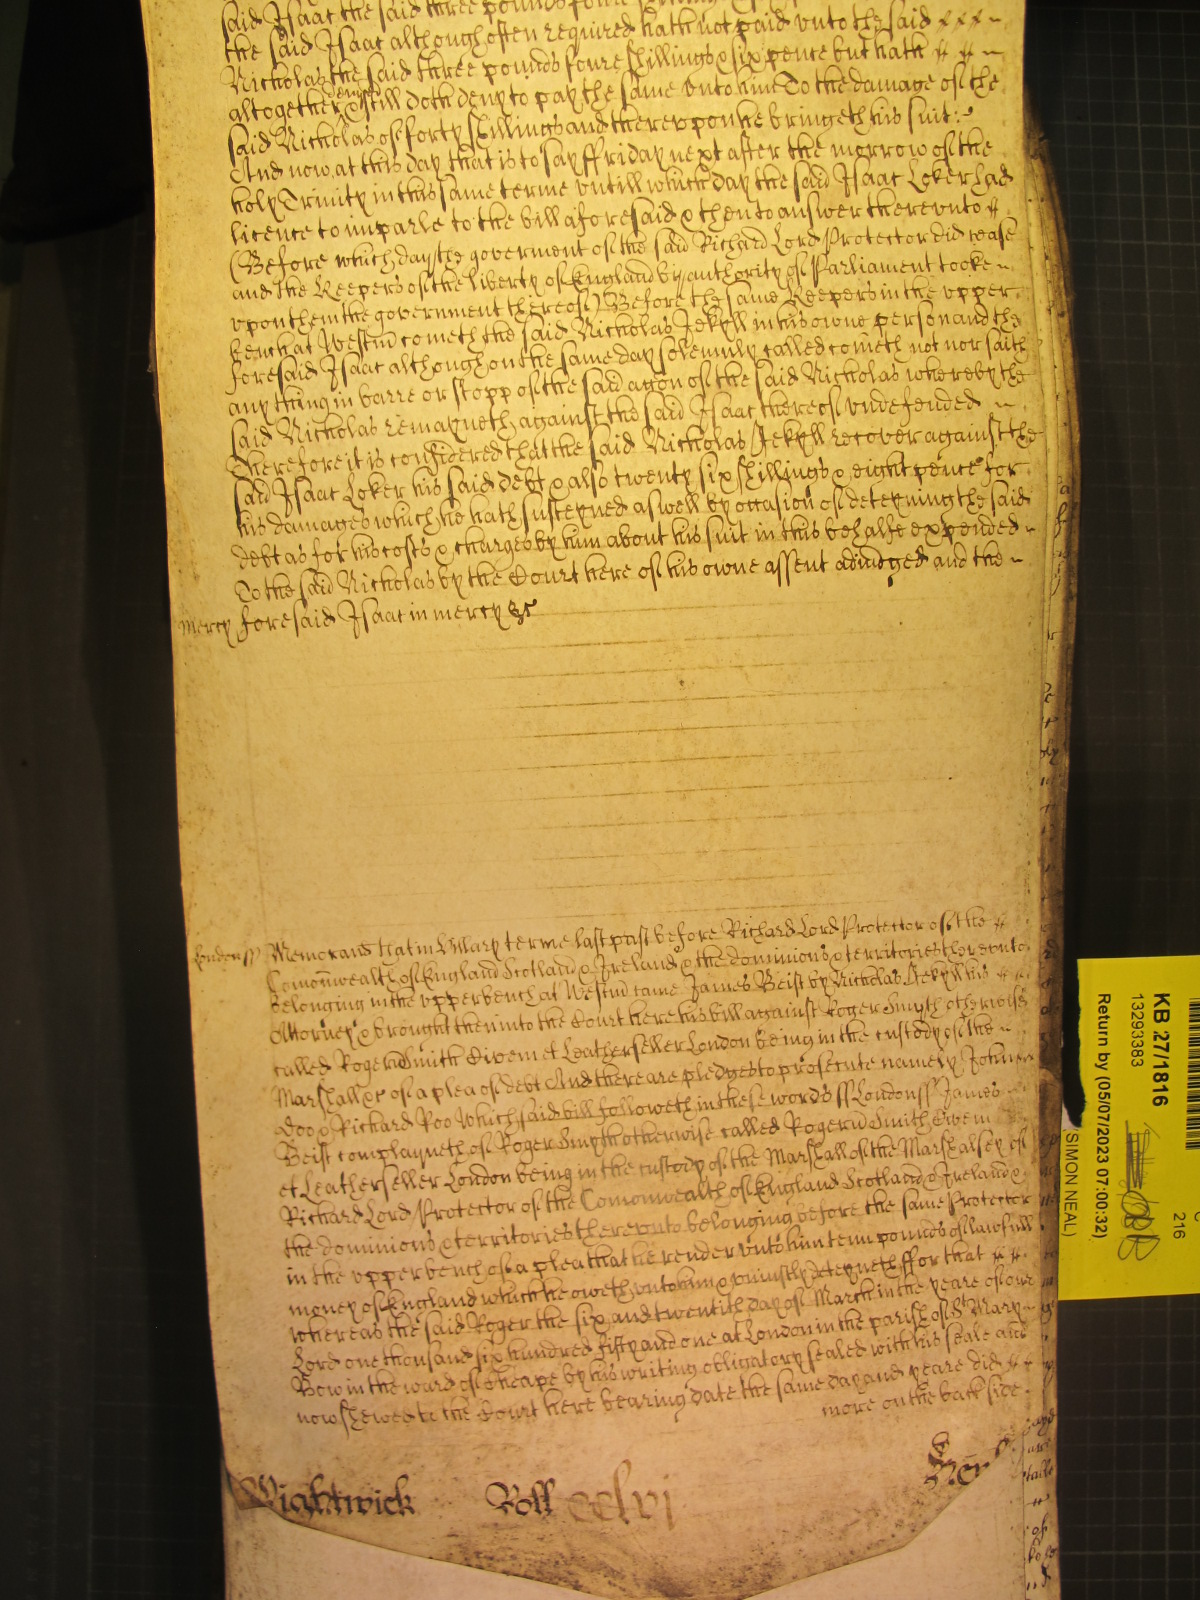 said Isaac the said three pounds foure
the said Isaac although often required hath not paid vnto the said
Nicholas the said three pounds foure shillings & six pence but hath
altogether denyed & still doth deny to pay the same vnto him To the damage of the
said Nicholas of forty shillings and therevpon he bringeth his suit.
And now at this day that is to say ffriday next after the morrow of the
holy Trinity in this same terme vntill which day the said Isaac Loker had
licence to imparle to the bill aforesaid & then to answer therevnto
(Before which day the goverment of the said Richard Lord Protector did cease
and The Keepers of the liberty of England by authority of Parliament tooke
vpon them the government thereof) Before the same Keepers in the vpper
bench at Westm cometh the said Nicholas Jekyll in his owne person and the
foresaid Isaac although on the same day solemnly called cometh not nor saith
any thing in barre or stopp of the said accon of the said Nicholas whereby the
said Nicholas remayneth against the said Isaac thereof vndefended
Therefore it is considered that the said Nicholas Jekyll recover against the
said Isaac Loker his said debt & also twenty six shillings & eight pence for
his damages which he hath susteyned aswell by occasion of deteyning the said
debt as for his costs & charges by him about his suit in this behalfe expended
To the said Nicholas by the Court here of his owne assent adiudged and the
Mercy foresaid Isaac in mercy &c
London ss Memorand that in Hillary terme last past before Richard Lord Protector of the
Comonwealth of England Scotland & Ireland & the dominions & territories therevnto
belonging in the vpper bench at Westm came James Beist by Nicholas Jekyll his
Attorney & brought then into the Court here his bill against Roger Smyth otherwise
called Rogerū Smith Civem et Leatherseller London being in the custody of the
Marshall &c of a plea of debt And there are pledges to prosecute namely John
Doo & Richard Roo Which said bill followeth in these words ss London ss James
Beist complayneth of Roger Smyth otherwise called Rogerū Smith Civem
et Leatherseller London being in the custody of the Marshall of the Marshalsey of
Richard Lord Protector of the Comonwealth of England Scotland & Ireland &
the dominions & territories therevnto belonging before the same Protector
in the vpper bench of a plea that he render vnto him tenn pounds of lawfull
money of England which he oweth vnto him & vniustly deteyneth ffor that
whereas the said Roger the six and twentith day of March in the yeare of our
Lord one thousand six hundred fifty and one at London in the parish of St Mary
Bow in the ward of Cheape by his writing obligatory sealed with his seale and
now shewed to the Court here bearing date the same day and yeare did
more on the back side
Wightwick Roll cclvi
KB 27/1816
13293383
Return by (05/07/2023 07:00:32)
216
(SIMON NEAL)